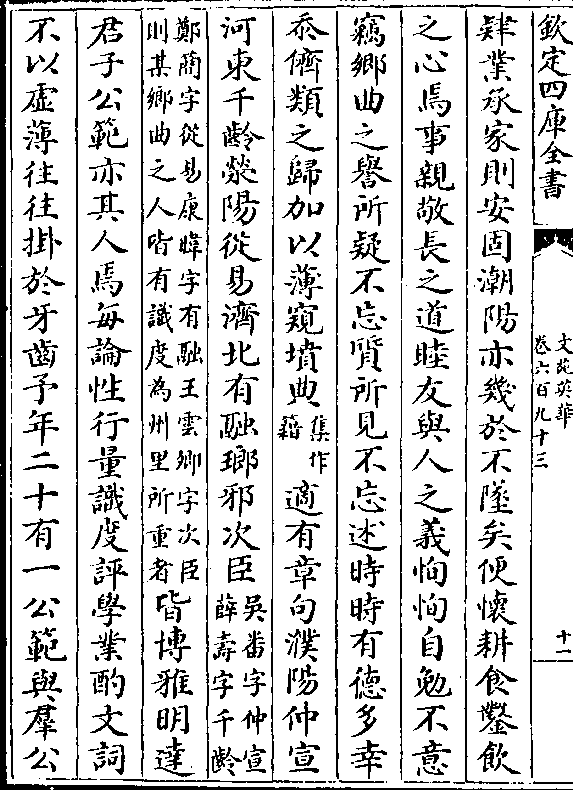 欽定四庫全書
文苑英華
卷六百九十三
十一
肄業承家則安固潮陽亦幾於不墜矣便懷耕食鑿飲
之心焉事親敬長之道睦友與人之義恂恂自勉不意
竊鄉曲之譽所疑不忘質所見不忘述時時有德多幸
忝儕類之歸加以薄窺墳典集作籍適有章句濮陽仲宣
河東千齡滎陽從易濟北有融瑯邪次臣吳畨字仲宣薛壽字千齡
鄭蕳字從易康暐字有融王雲卿字次臣則某鄉曲之人皆有識度為州里所重者皆博雅明達
君子公範亦其人焉每論性行量識度評學業酌文詞
不以虛薄往往掛於牙齒予年二十有一公範與羣公